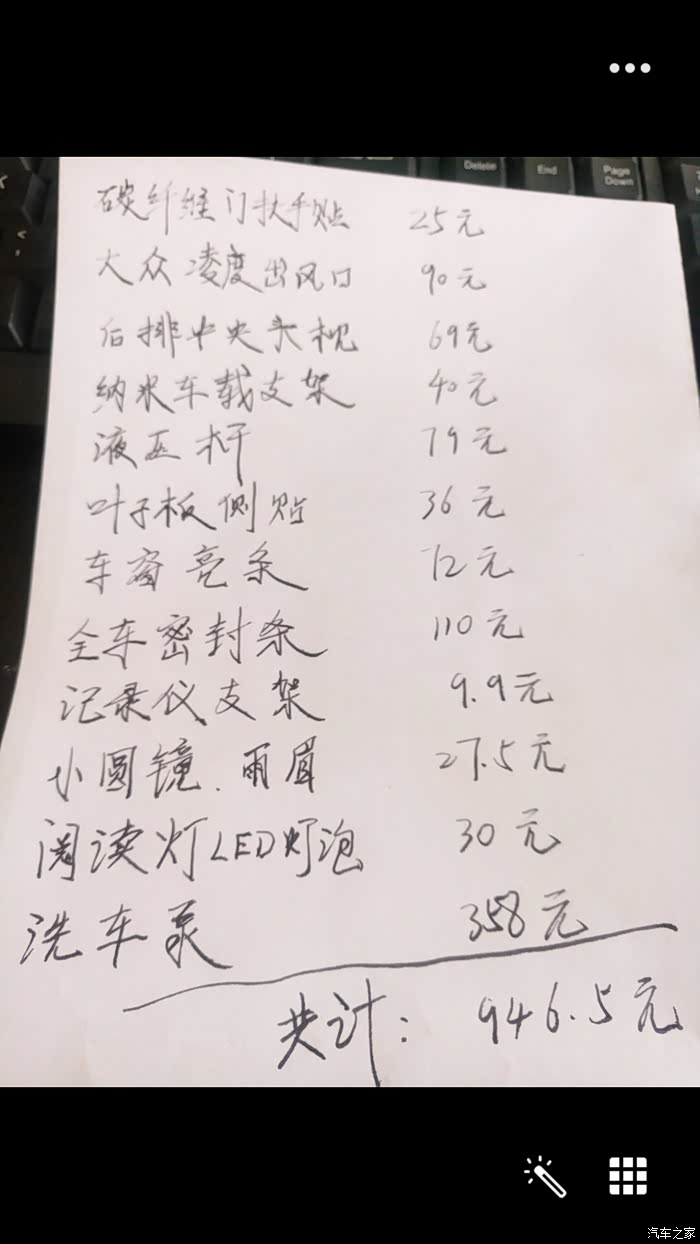 Delete End Page Down
碳纤维门扶手贴 25元
大众凌度出风口 90元
后排中央头枕 69元
纳米车载支架 40元
液压杆 79元
叶子板侧贴 36元
车窗亮条 72元
全车密封条 110元
记录仪支架 9.9元
小圆镜.雨眉 27.5元
阅读灯LED灯泡 30元
洗车泵 358元
共计: 946.5元
汽车之家